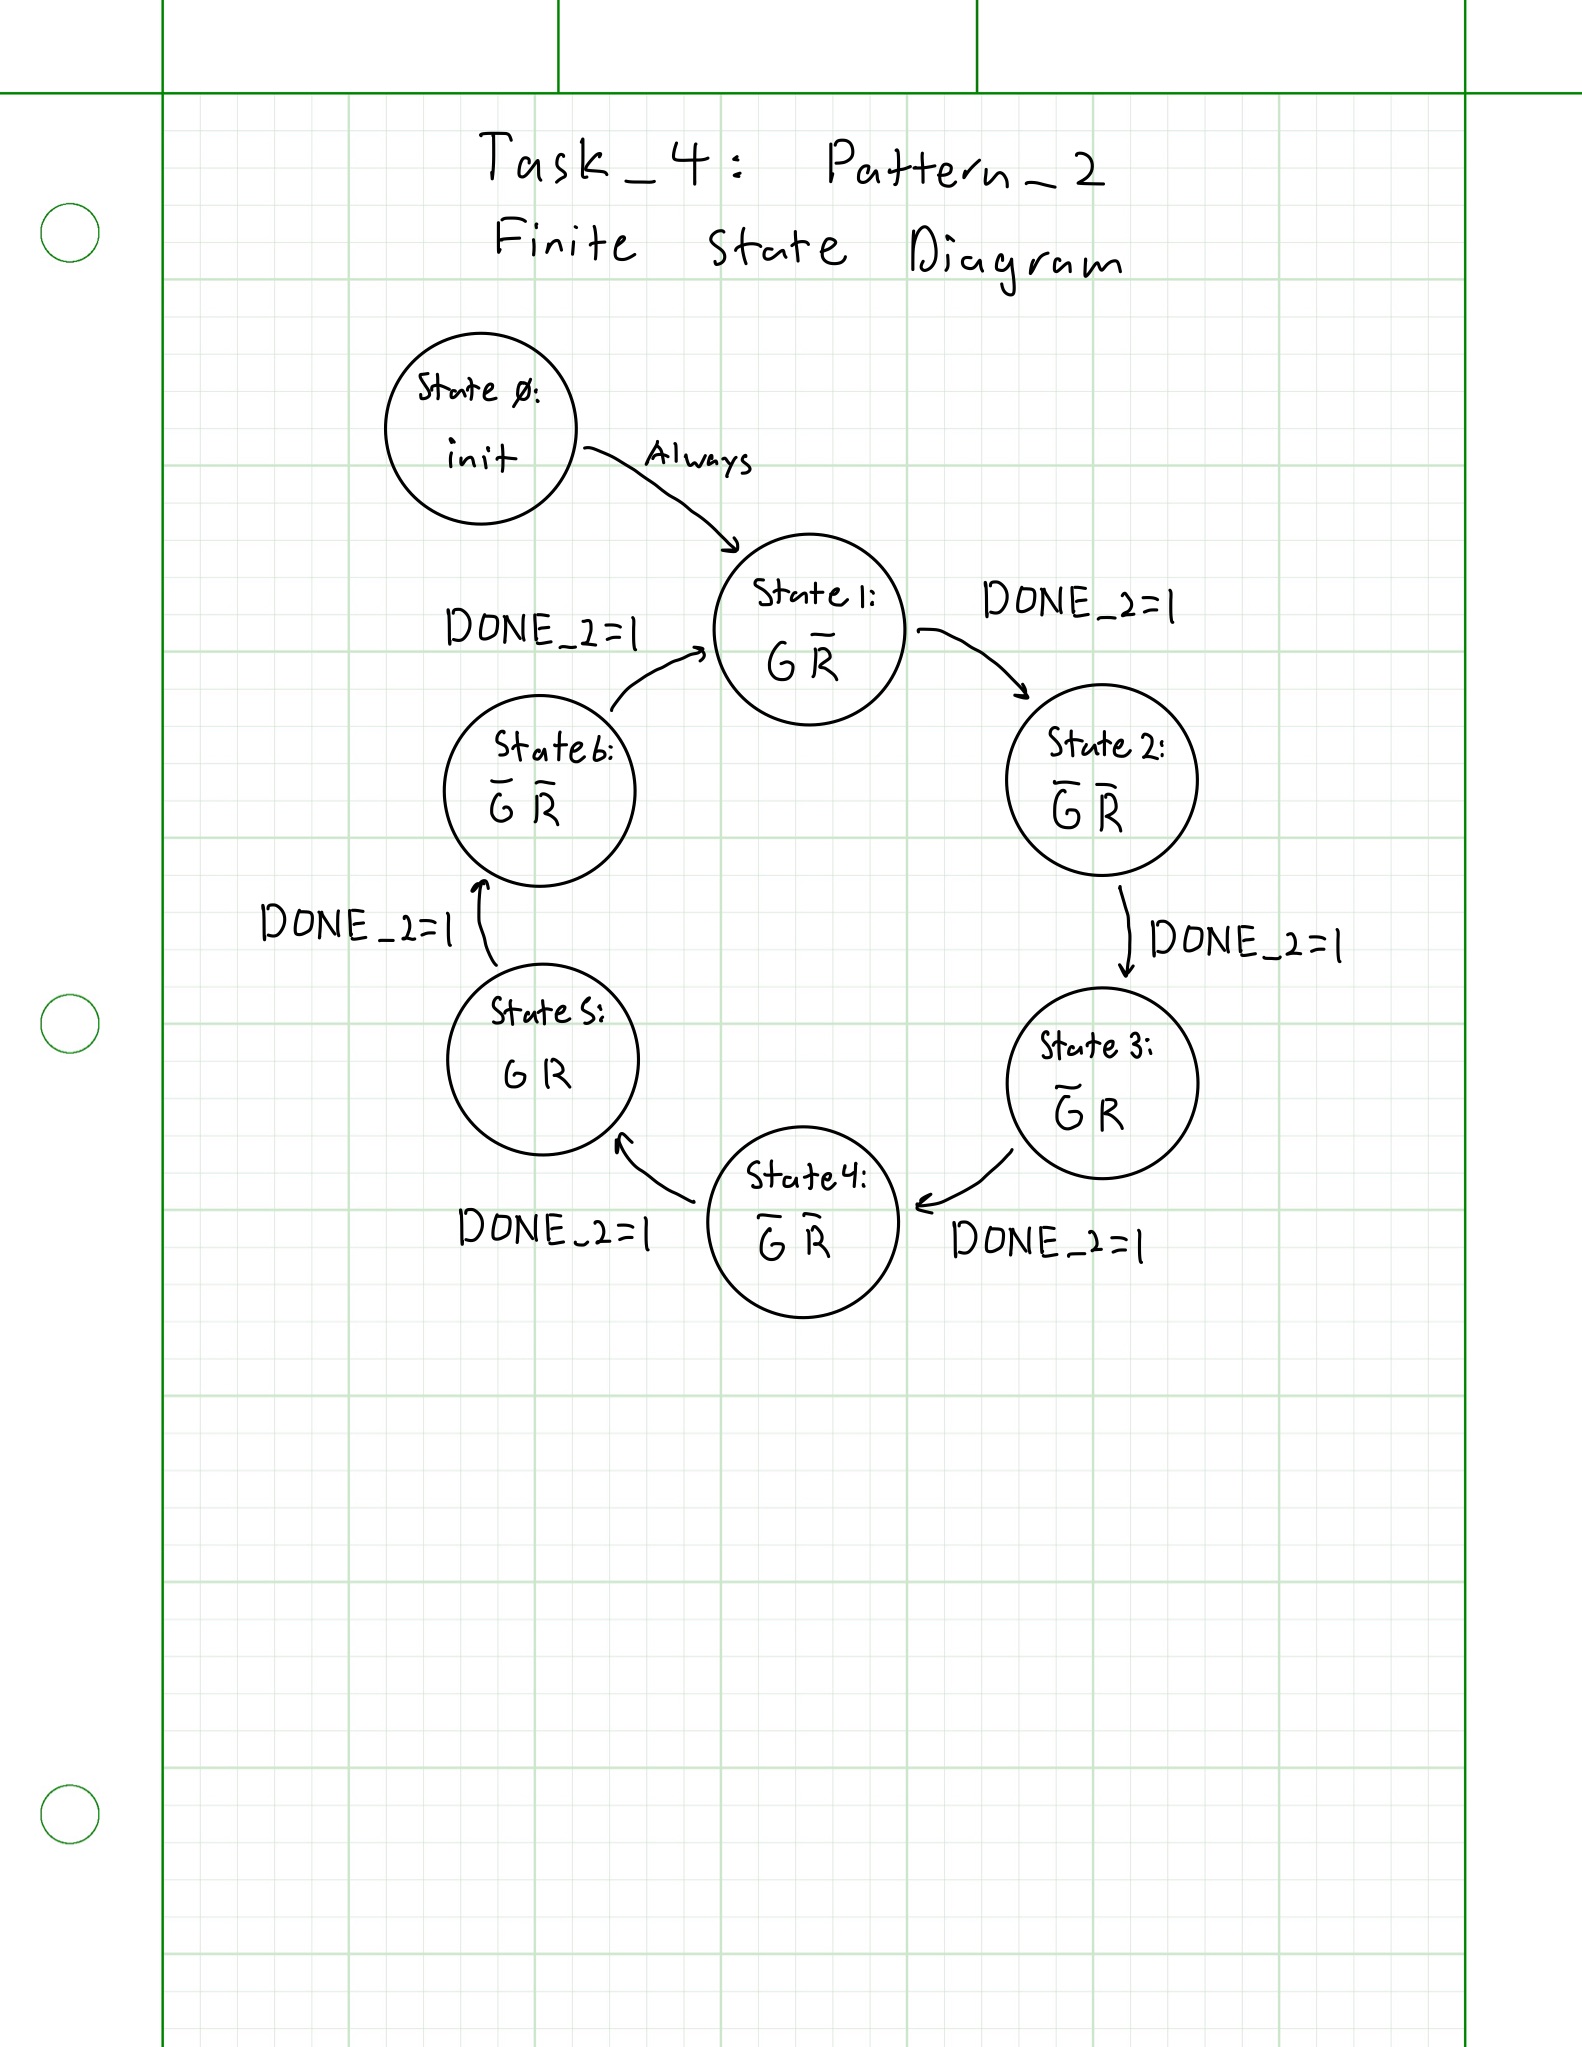 Task_4: Pattern_2
Finite State Diagram
State Ø:
init
Always
State 1:
G R̅
DONE_2=1
State 2:
G̅ R̅
DONE_2=1
State 3:
G̅ R
DONE_2=1
State 4:
G̅ R̅
DONE_2=1
State 5:
G R
DONE_2=1
State 6:
G̅ R̅
DONE_2=1